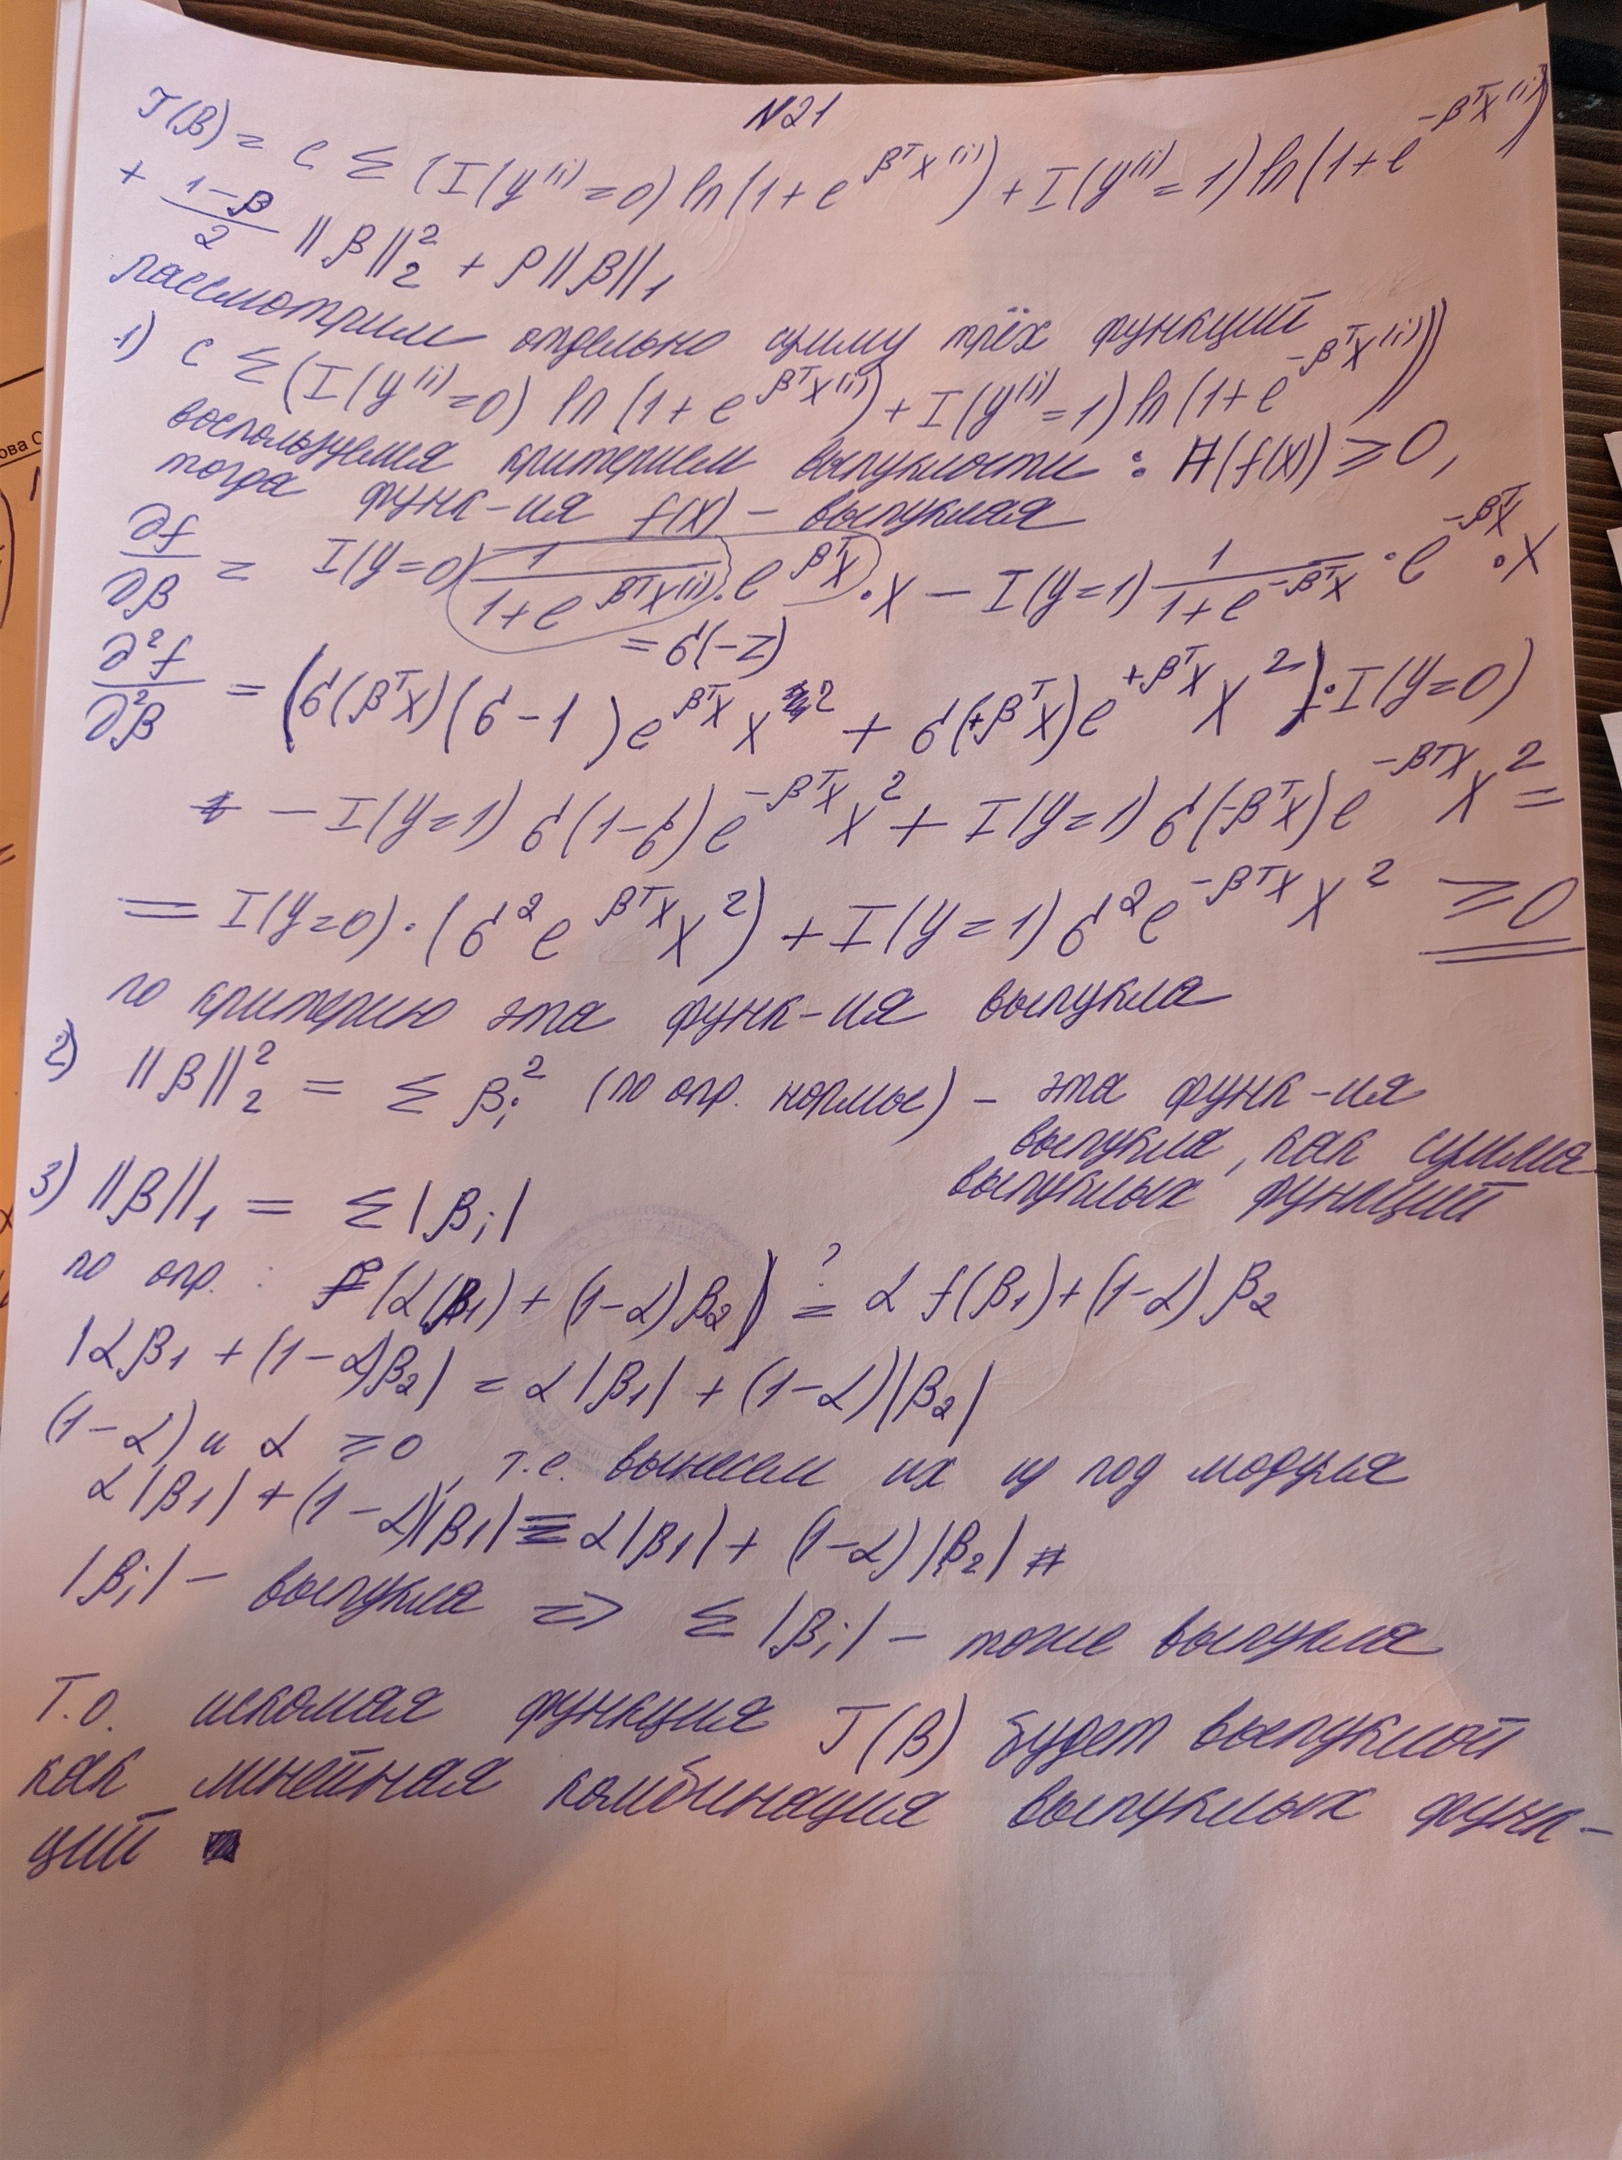 N21
J(β) = C Σ (I(y⁽ⁱ⁾=0) ln(1+e^{βᵀX⁽ⁱ⁾}) + I(y⁽ⁱ⁾=1) ln(1+e^{-βᵀX⁽ⁱ⁾})
+ (1-β)/2 ||β||₂² + ρ||β||₁
Рассмотрим отдельно сумму трёх функций
1) C Σ(I(y⁽ⁱ⁾=0) ln(1+e^{βᵀX⁽ⁱ⁾}) + I(y⁽ⁱ⁾=1) ln(1+e^{-βᵀX⁽ⁱ⁾}))
воспользуемся критерием выпуклости: H(f(X)) ≥ 0,
тогда функ-ия f(X) – выпуклая
∂f/∂β = I(y=0) 1/(1+e^{βᵀX⁽ⁱ⁾}) · e^{βᵀX} · X – I(y=1) 1/(1+e^{-βᵀX}) · e^{-βᵀX} · X
= σ(-z)
∂²f/∂²β = (σ(βᵀX)(σ-1)e^{βᵀX} X² + σ(+βᵀX)e^{+βᵀX} X²) · I(y=0)
– I(y=1) σ(1-σ) e^{-βᵀX} X² + I(y=1) σ(-βᵀX) e^{-βᵀX} X² =
= I(y=0) · (σ² e^{βᵀX} X²) + I(y=1) σ² e^{-βᵀX} X² ≥ 0
по критерию эта функ-ия выпукла
2) ||β||₂² = Σ βᵢ² (по опр. нормы) – эта функ-ия
выпукла, как сумма
выпуклых функций
3) ||β||₁ = Σ|βᵢ|
по опр.: f(α(β₁) + (1-α)β₂) =? α f(β₁) + (1-α) β₂
|αβ₁ + (1-α)β₂| = α|β₁| + (1-α)|β₂|
(1-α) и α ≥ 0, т.е. вынесем их из под модуля
α|β₁| + (1-α)|β₁| ≡ α|β₁| + (1-α)|β₂| #
|βᵢ| – выпукла => Σ|βᵢ| – тоже выпукла
Т.о. искомая функция J(β) будет выпуклой
как линейная комбинация выпуклых функ-
ций